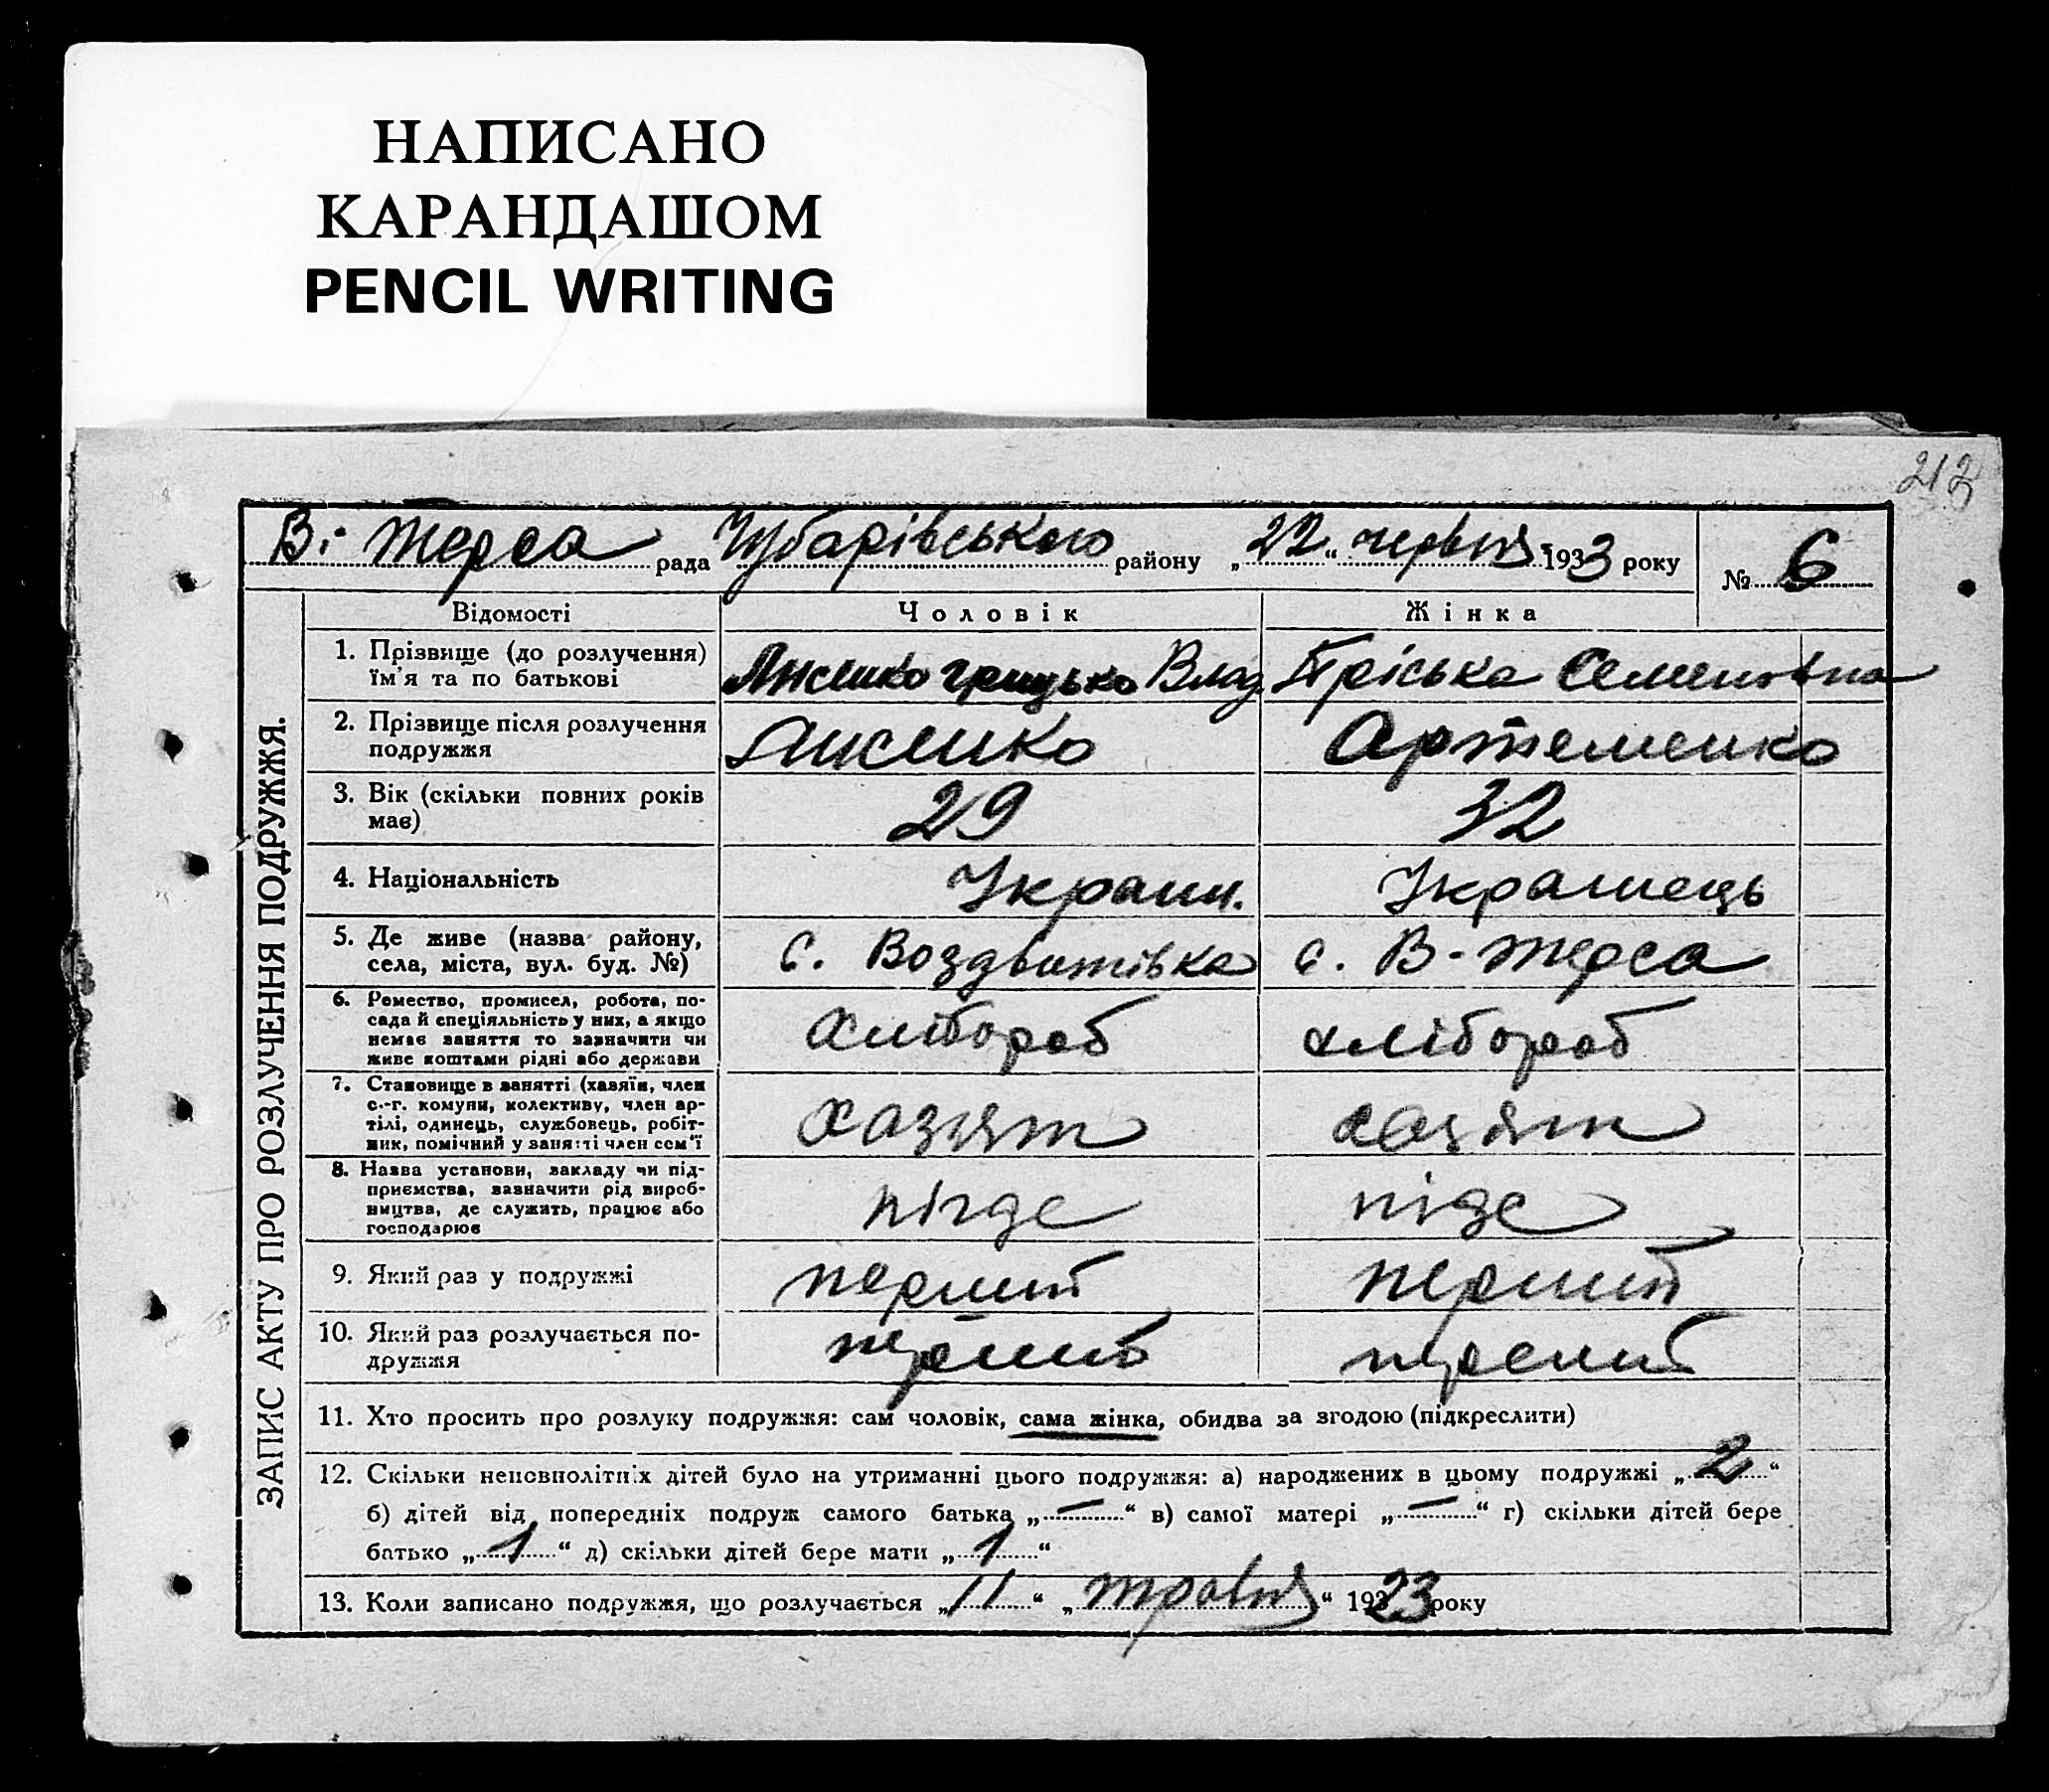 НАПИСАНО
КАРАНДАШОМ
PENCIL WRITING
212
В. Терса рада Чубарівського району „22“ червня 1933 року № 6
ЗАПИС АКТУ ПРО РОЗЛУЧЕННЯ ПОДРУЖЖЯ.
Відомості Чоловік Жінка
1. Прізвище (до розлучення) Лисенко Грицько Влад Пріська Семеновна
їм'я та по батькові
2. Прізвище після розлучення Лисенко Артеменко
подружжя
3. Вік (скільки повних років 29 32
має)
4. Національність Украин. Украинець
5. Де живе (назва району, с. Воздвижівка с. В-Терса
села, міста, вул. буд. №)
6. Ремество, промисел, робота, по- хлібороб хлібороб
сада й спеціяльність у них, а якщо
немає заняття то зазначити чи
живе коштами рідні або держави
7. Становище в занятті (хазяїн, член хазяїн хазяїн
с.-г. комуни, колективу, член ар-
тілі, одинець, службовець, робіт-
ник, помічний у занятті член сем'ї
8. Назва установи, закладу чи під- нігде нізе
приємства, зазначити рід вироб-
ництва, де служить, працює або
господарює
9. Який раз у подружжі перший перший
10. Який раз розлучається по- перший
дружжя
11. Хто просить про розлуку подружжя: сам чоловік, сама жінка, обидва за згодою (підкреслити)
12. Скільки неповнолітніх дітей було на утриманні цього подружжя: а) народжених в цьому подружжі „2“
б) дітей від попередніх подруж самого батька „—“ в) самої матері „—“ г) скільки дітей бере
батько „1“ д) скільки дітей бере мати „1“
13. Коли записано подружжя, що розлучається „11“ „травня“ 1923 року